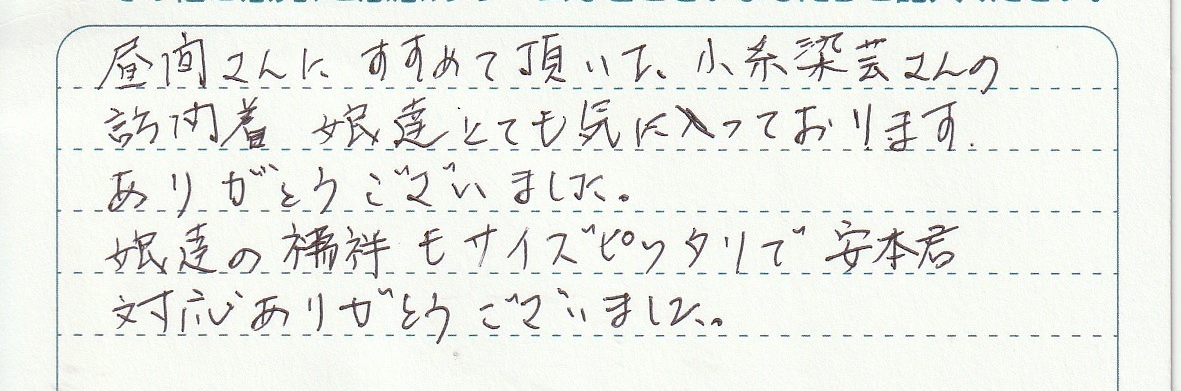 昼間さんに すすめて頂いた、小糸染芸さんの
訪問着 娘達とても気に入っております.
ありがとうございました。
娘達の襦袢もサイズピッタリで 安本君
対応ありがとうございました。